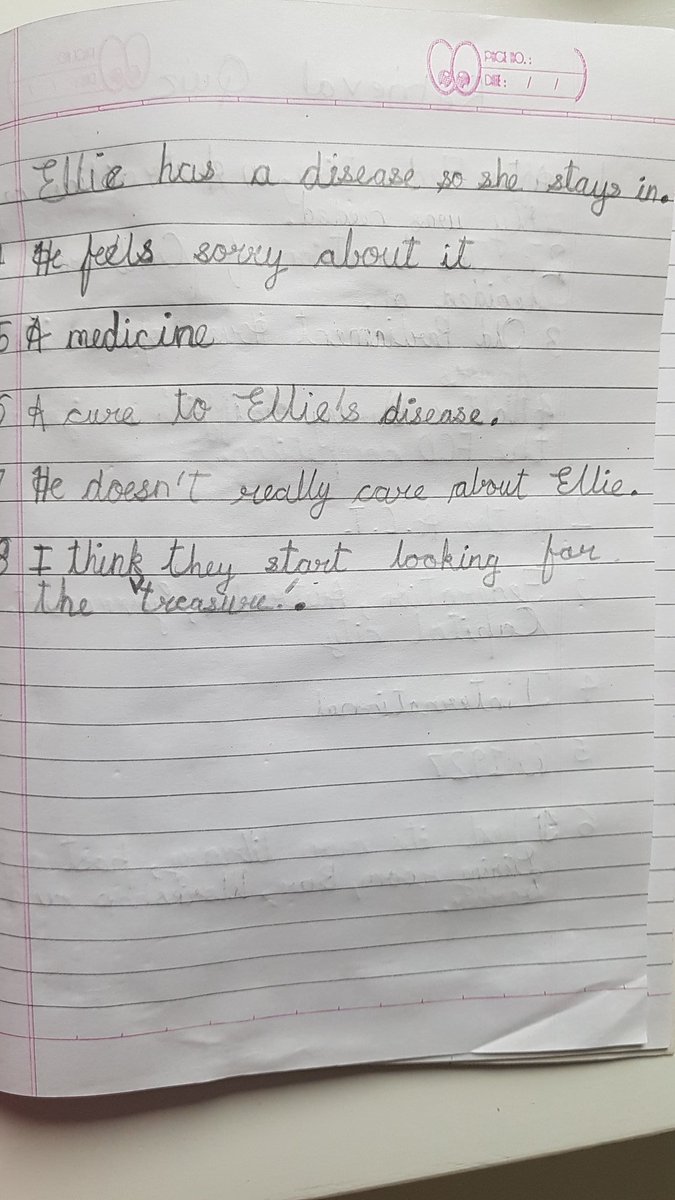 PAGE NO.:
DATE: / /
Ellie has a disease so she stays in.
He feels sorry about it
5 A medicine
A cure to Ellie's disease.
7 He doesn't really care about Ellie.
8 I think they start looking for
the treasure.